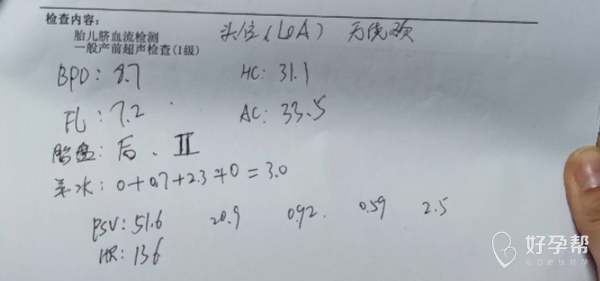 检查内容：
胎儿脐血流检测 头位(LOA) 无绕颈
一般产前超声检查(1级)
BPD: 8.7 HC: 31.1
FL: 7.2 AC: 33.5
胎盘: 后、Ⅱ
羊水: 0+0.7+2.3+0=3.0
PSV: 51.6 20.9 0.92 0.59 2.5
HR: 136
好孕帮